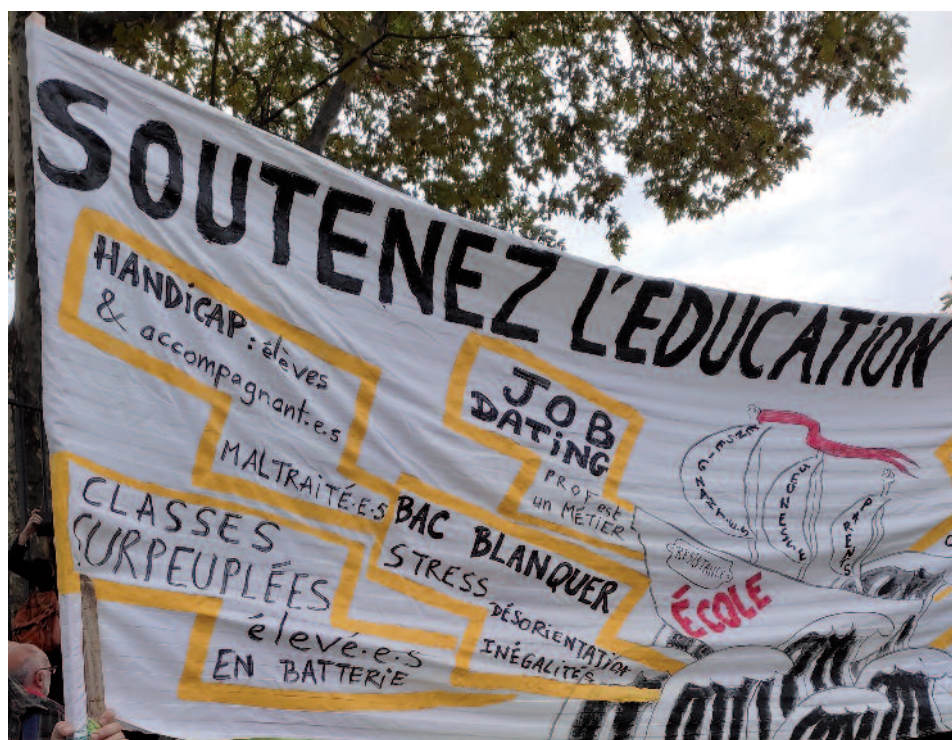 SOUTENEZ L'EDUCATION
HANDiCAP : élèves
& accompagnant·e·s
MALTRAITÉ·E·S
JOB
DATiNG
PROF est
un MÉTIER
CLASSES
SURPEUPLÉES
élevé·e·s
EN BATTERIE
BAC BLANQUER
STRESS
DÉSORIENTATION
INÉGALITÉS
ENSEIGNANT·E·S
JEUNESSE
PARENTS
RÉSISTANCES
ÉCOLE